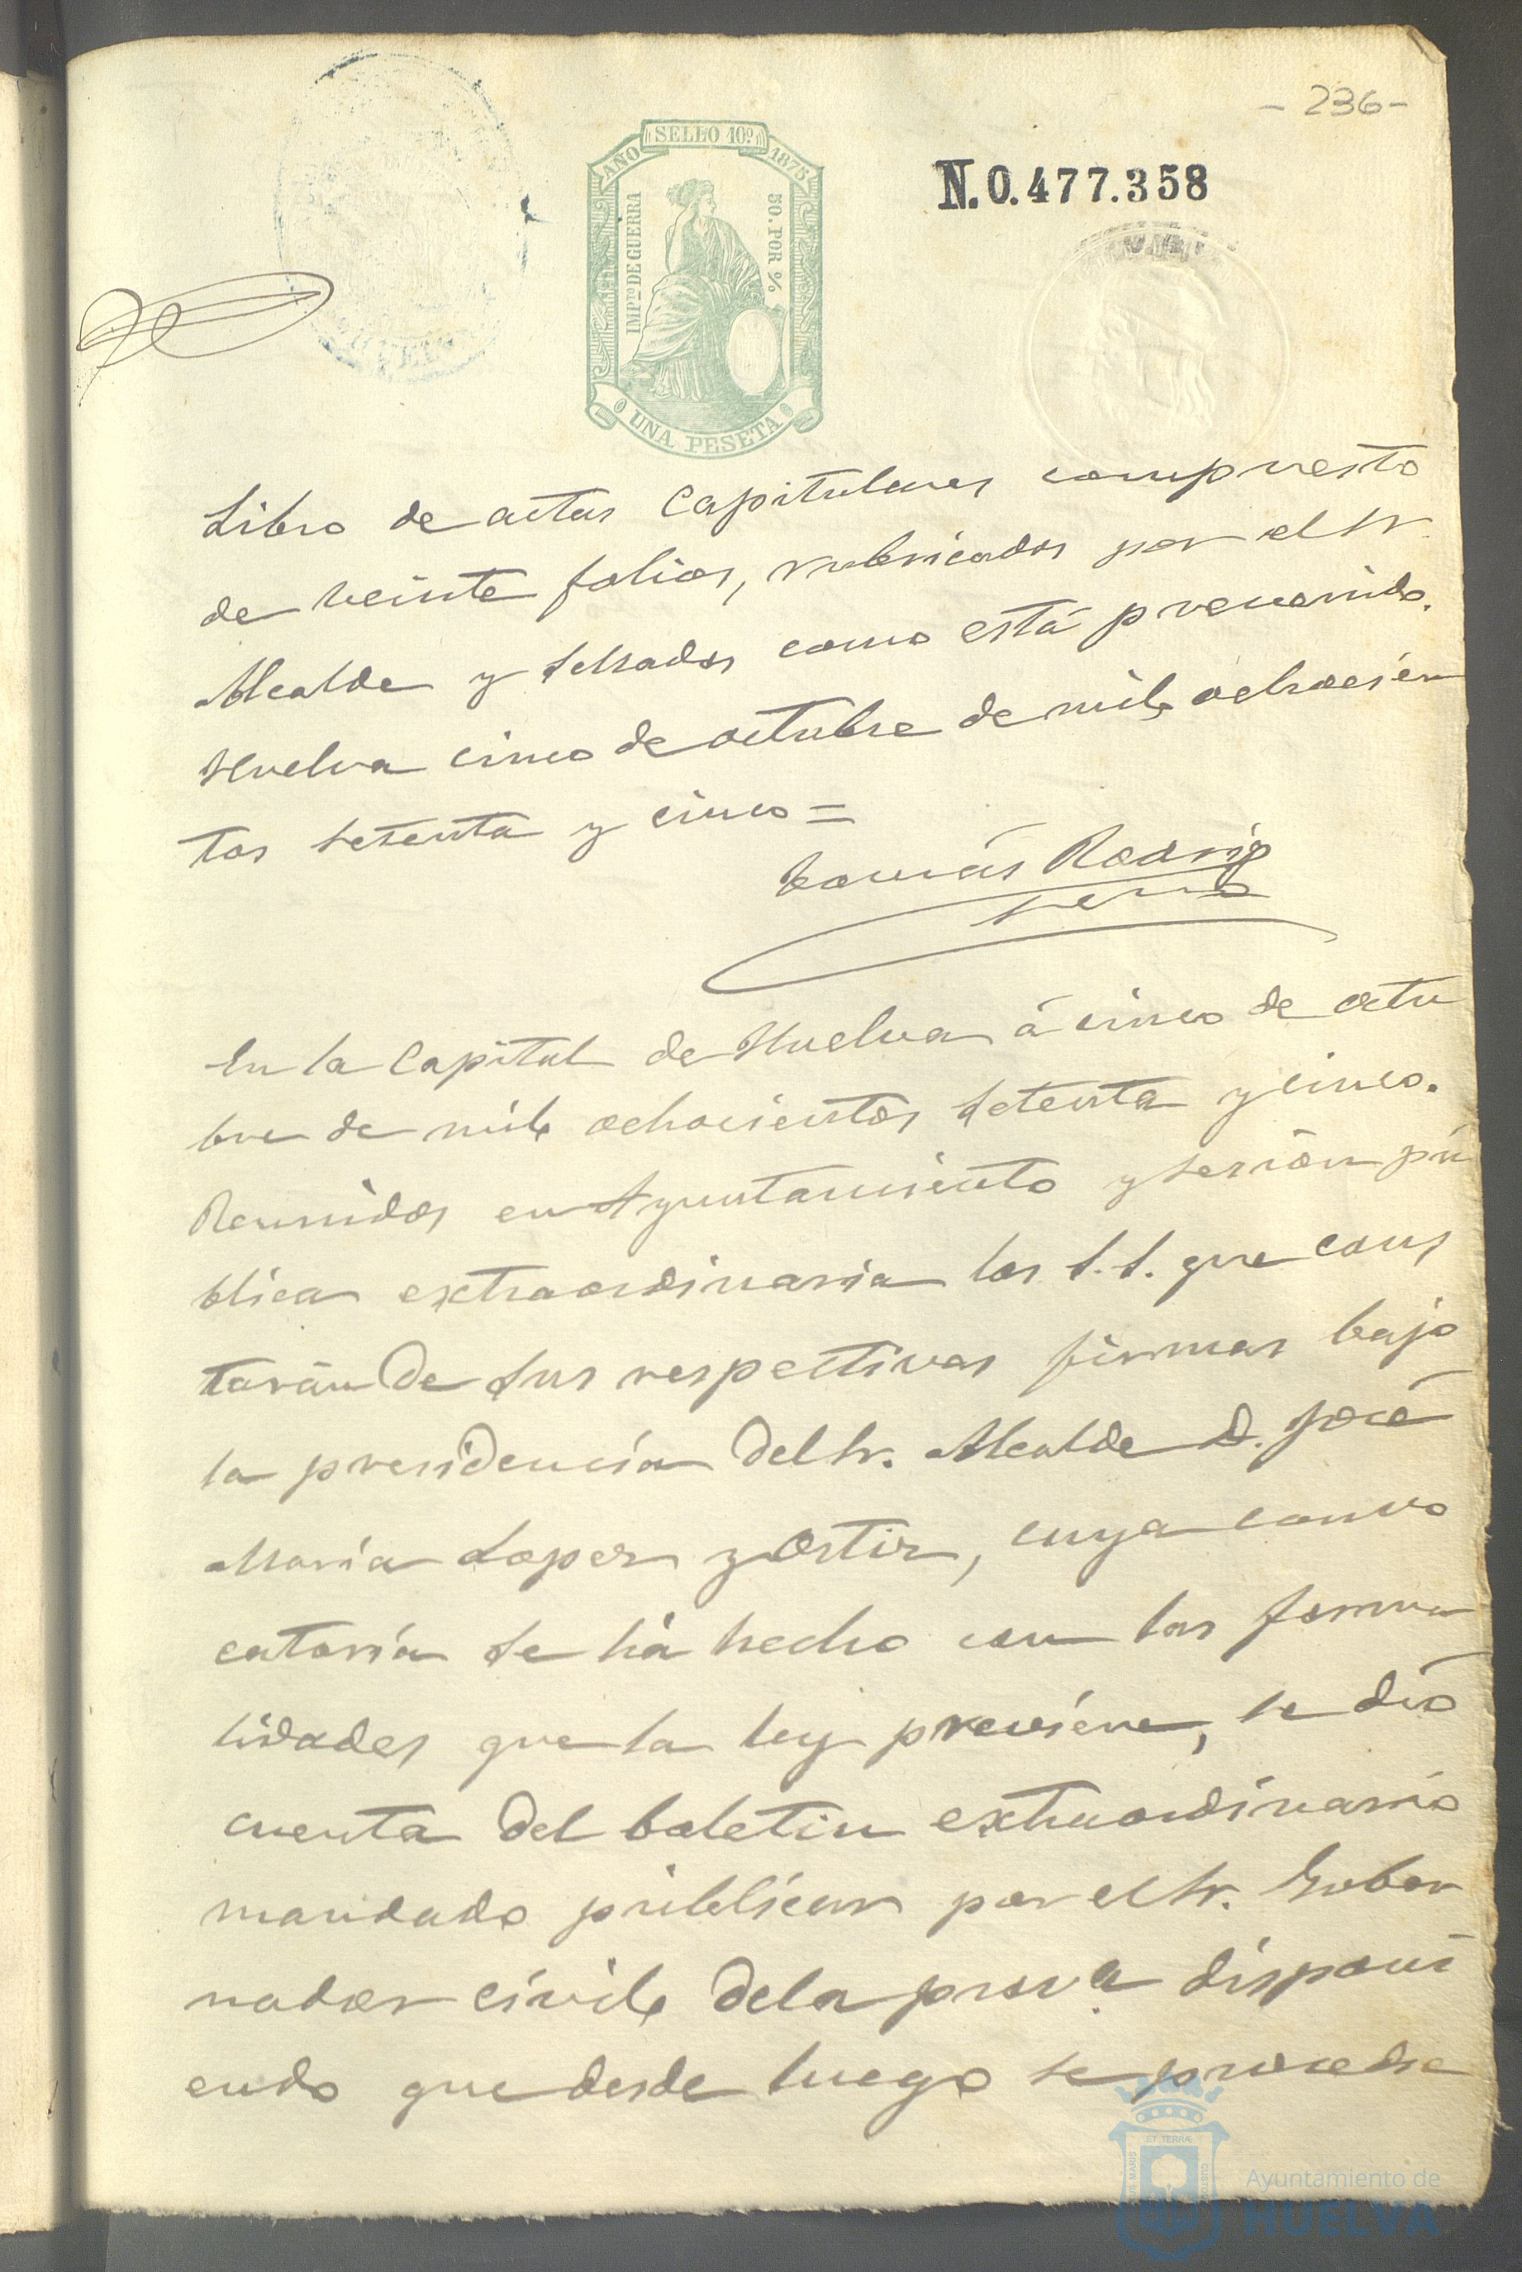 - 236 -
SELLO 10º
AÑO 1875
IMPTO DE GUERRA
50. POR %
UNA PESETA
N. 0.477.358
Libro de actas Capitulares compuesto
de veinte folios, rubricados por el Sr.
Alcalde y sellados como está prevenido.
Huelva cinco de octubre de mil ochocien
tos setenta y cinco =
Tomás Rodrig
En la Capital de Huelva á cinco de octu
bre de mil ochocientos setenta y cinco.
Reunidos en Ayuntamiento y sesión pú
blica extraordinaria los S.S. que cons
tarán de sus respectivas firmas bajo
la presidencia del Sr. Alcalde D. José
María Lopez y Ortiz, cuya convo
catoria se há hecho con las forma
lidades que la ley previene, se dió
cuenta del boletin extraordinario
mandado publicar por el Sr. Gober
nador civil de la prova disponi
endo que desde luego se proceda
ET TERRÆ
MARIS
CUSTOS
Ayuntamiento de
HUELVA